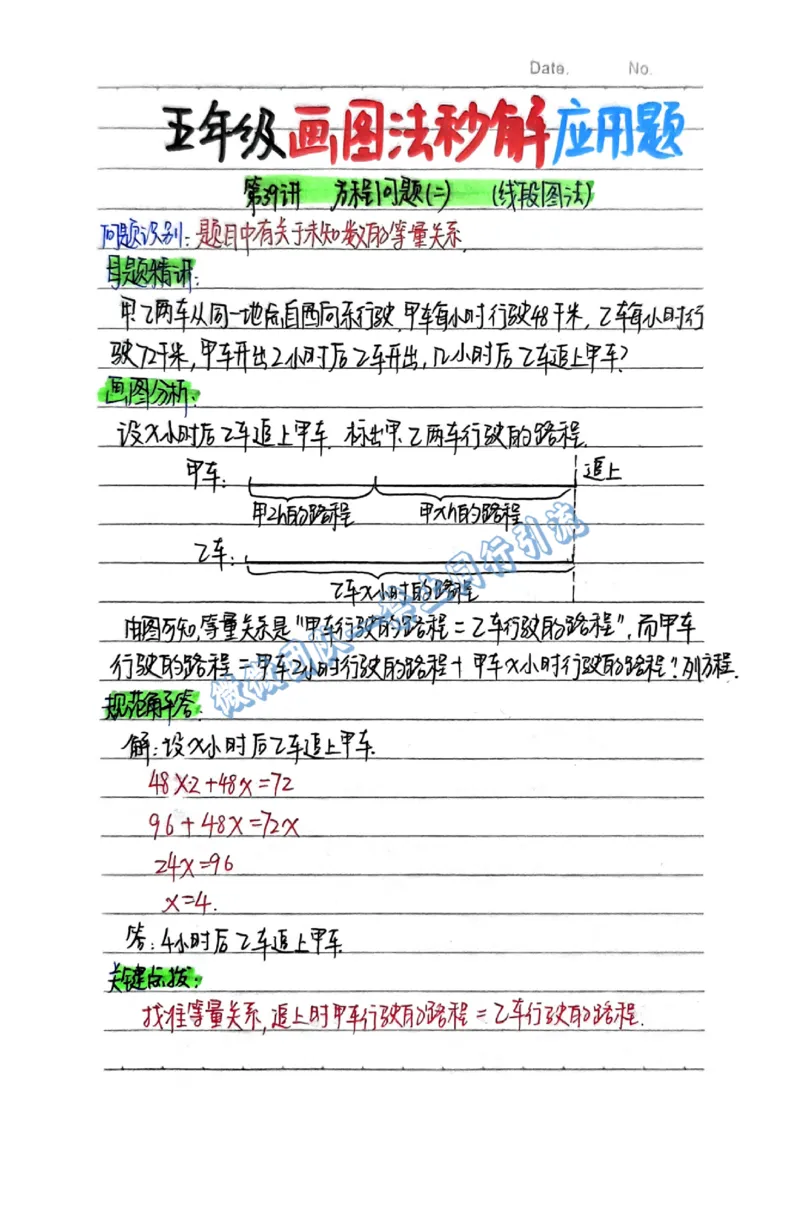 Date. No.
五年级画图法秒解应用题
第39讲 方程问题(二) (线段图法)
问题识别:题目中有关于未知数的等量关系.
例题精讲:
甲.乙两车从同一地点自西向东行驶,甲车每小时行驶48千米,乙车每小时行
驶72千米,甲车开出2小时后乙车开出,几小时后乙车追上甲车?
画图分析:
设x小时后乙车追上甲车.标出甲.乙两车行驶的路程.
甲车: 追上
甲2h的路程 甲xh的路程
乙车:
乙车x小时的路程
由图可知,等量关系是"甲车行驶的路程=乙车行驶的路程",而甲车
行驶的路程=甲车2小时行驶的路程+甲车x小时行驶的路程",列方程.
规范解答:
解:设x小时后乙车追上甲车.
48×2+48x=72
96+48x=72x
24x=96
x=4.
答:4小时后乙车追上甲车.
关键点拨:
找准等量关系,追上时甲车行驶的路程=乙车行驶的路程.